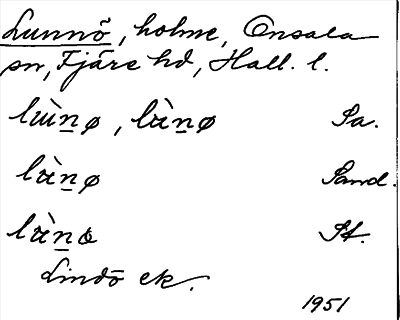 Lunnö, holme, Onsala
sn, Fjäre hd, Hall. l.
lùn̲ø, lὰn̲ø Sa.
lὰn̲ø Sand.
lὰn̲ɵ St.
Lindö ek.
1951